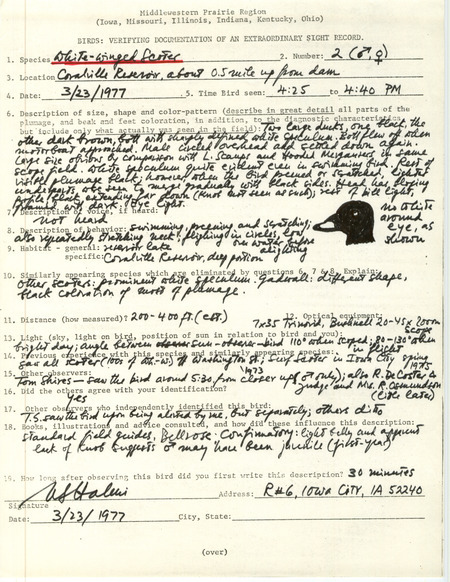 Middlewestern Prairie Region
(Iowa, Missouri, Illinois, Indiana, Kentucky, Ohio)
BIRDS: VERIFYING DOCUMENTATION OF AN EXTRAORDINARY SIGHT RECORD.
1. Species White-winged Scoter 2. Number: 2 (♂, ♀)
3. Location Coralville Reservoir, about 0.5 mile up from dam
4. Date: 3/23/1977 5. Time Bird seen: 4:25 to 4:40 PM
6. Description of size, shape and color-pattern (describe in great detail all parts of the
plumage, and beak and feet coloration, in addition, to the diagnostic characteristics,
but include only what actually was seen in the field): Two large ducks, one black, the
other dark brown, both with sharply defined white speculum. Both flew off when
motorboat approached. Male circled overhead and settled down again.
Large size obvious by comparison with L. Scaups and Hooded Mergansers in same
scope field. White speculum quite evident even in swimming bird. Rest of
visible plumage black; however, when the bird preened or scratched, lighter
underparts were seen to merge gradually with black sides. Head has sloping
profile, black extending far down (knob not seen as such); rest of bill light,
Eye light.
7. Description of voice, if heard:
Not heard
8. Description of behavior: swimming, preening, and scratching;
also repeatedly stretching neck; flying in circles, low
over water before
alighting
9. Habitat - general: reservoir lake
specific: Coralville Reservoir, deep portion
no white
around
eye, as
shown
10. Similarly appearing species which are eliminated by questions 6, 7 & 8. Explain:
Other scoters: prominent white speculum. Gadwall: different shape,
black coloration of most of plumage.
11. Distance (how measured)? 200-400 ft. (est.)
12. Optical equipment:
7x35 Trinovid, Bushnell 20-45x zoom
scope
13. Light (sky, light on bird, position of sun in relation to bird and you):
bright day; angle between sun-observer-bird 110° when scoped; 80-130° when
in flight
14. Previous experience with this species and similarly appearing species:
saw all scoters (100s of Wh-w) off Washington St.; Surf Scoter in Iowa City spring
1973 1975
15. Other observers:
Tom Shires - saw the bird around 5:30 from closer up (♂ only); also R. DeCoster
Judge and Mrs. R. Osmundson
(little later)
16. Did the others agree with your identification?
yes
17. Other observers who independently identified this bird:
T.S. saw the bird upon being alerted by me, but separately; others ditto
18. Books, illustrations and advice consulted, and how did these influence this description:
standard field guides, Bellrose. Confirmatory: light belly and apparent
lack of knob suggests ♂ may have been juvenile (first-year)
19. How long after observing this bird did you first write this description? 30 minutes
NSHalmi Address: R#6, Iowa City, IA 52240
Signature
Date: 3/23/1977 City, State:
(over)